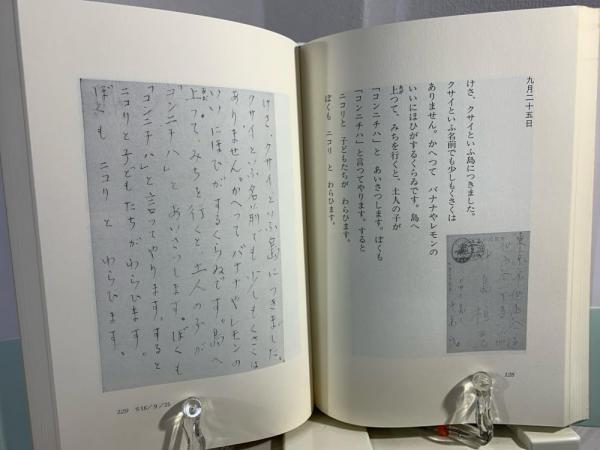 九月二十五日
けさ、クサイといふ島につきました。
クサイといふ名前でも少しもくさくは
ありません。かへつて バナナやレモンの
いいにほひがするくらゐです。島へ
上つて、みちを行くと、土人の子が
「コンニチハ」と あいさつします。ぼくも
「コンニチハ」と言つてやります。すると
ニコリと 子どもたちが わらひます。
ぼくも ニコリ と わらひます。
128
けさ、クサイといふ島につきました。
クサイといふ名前でも少しもくさくは
ありません。かへって バナナやレモンの
いいにほひがするくらゐです。島へ
上って、みちを行くと、土人の子が
「コンニチハ」と あいさつします。ぼくも
「コンニチハ」と言ってやります。すると
ニコリと子どもたちがわらひます。
ぼくも ニコリ と わらひます。
129 S16/9/25